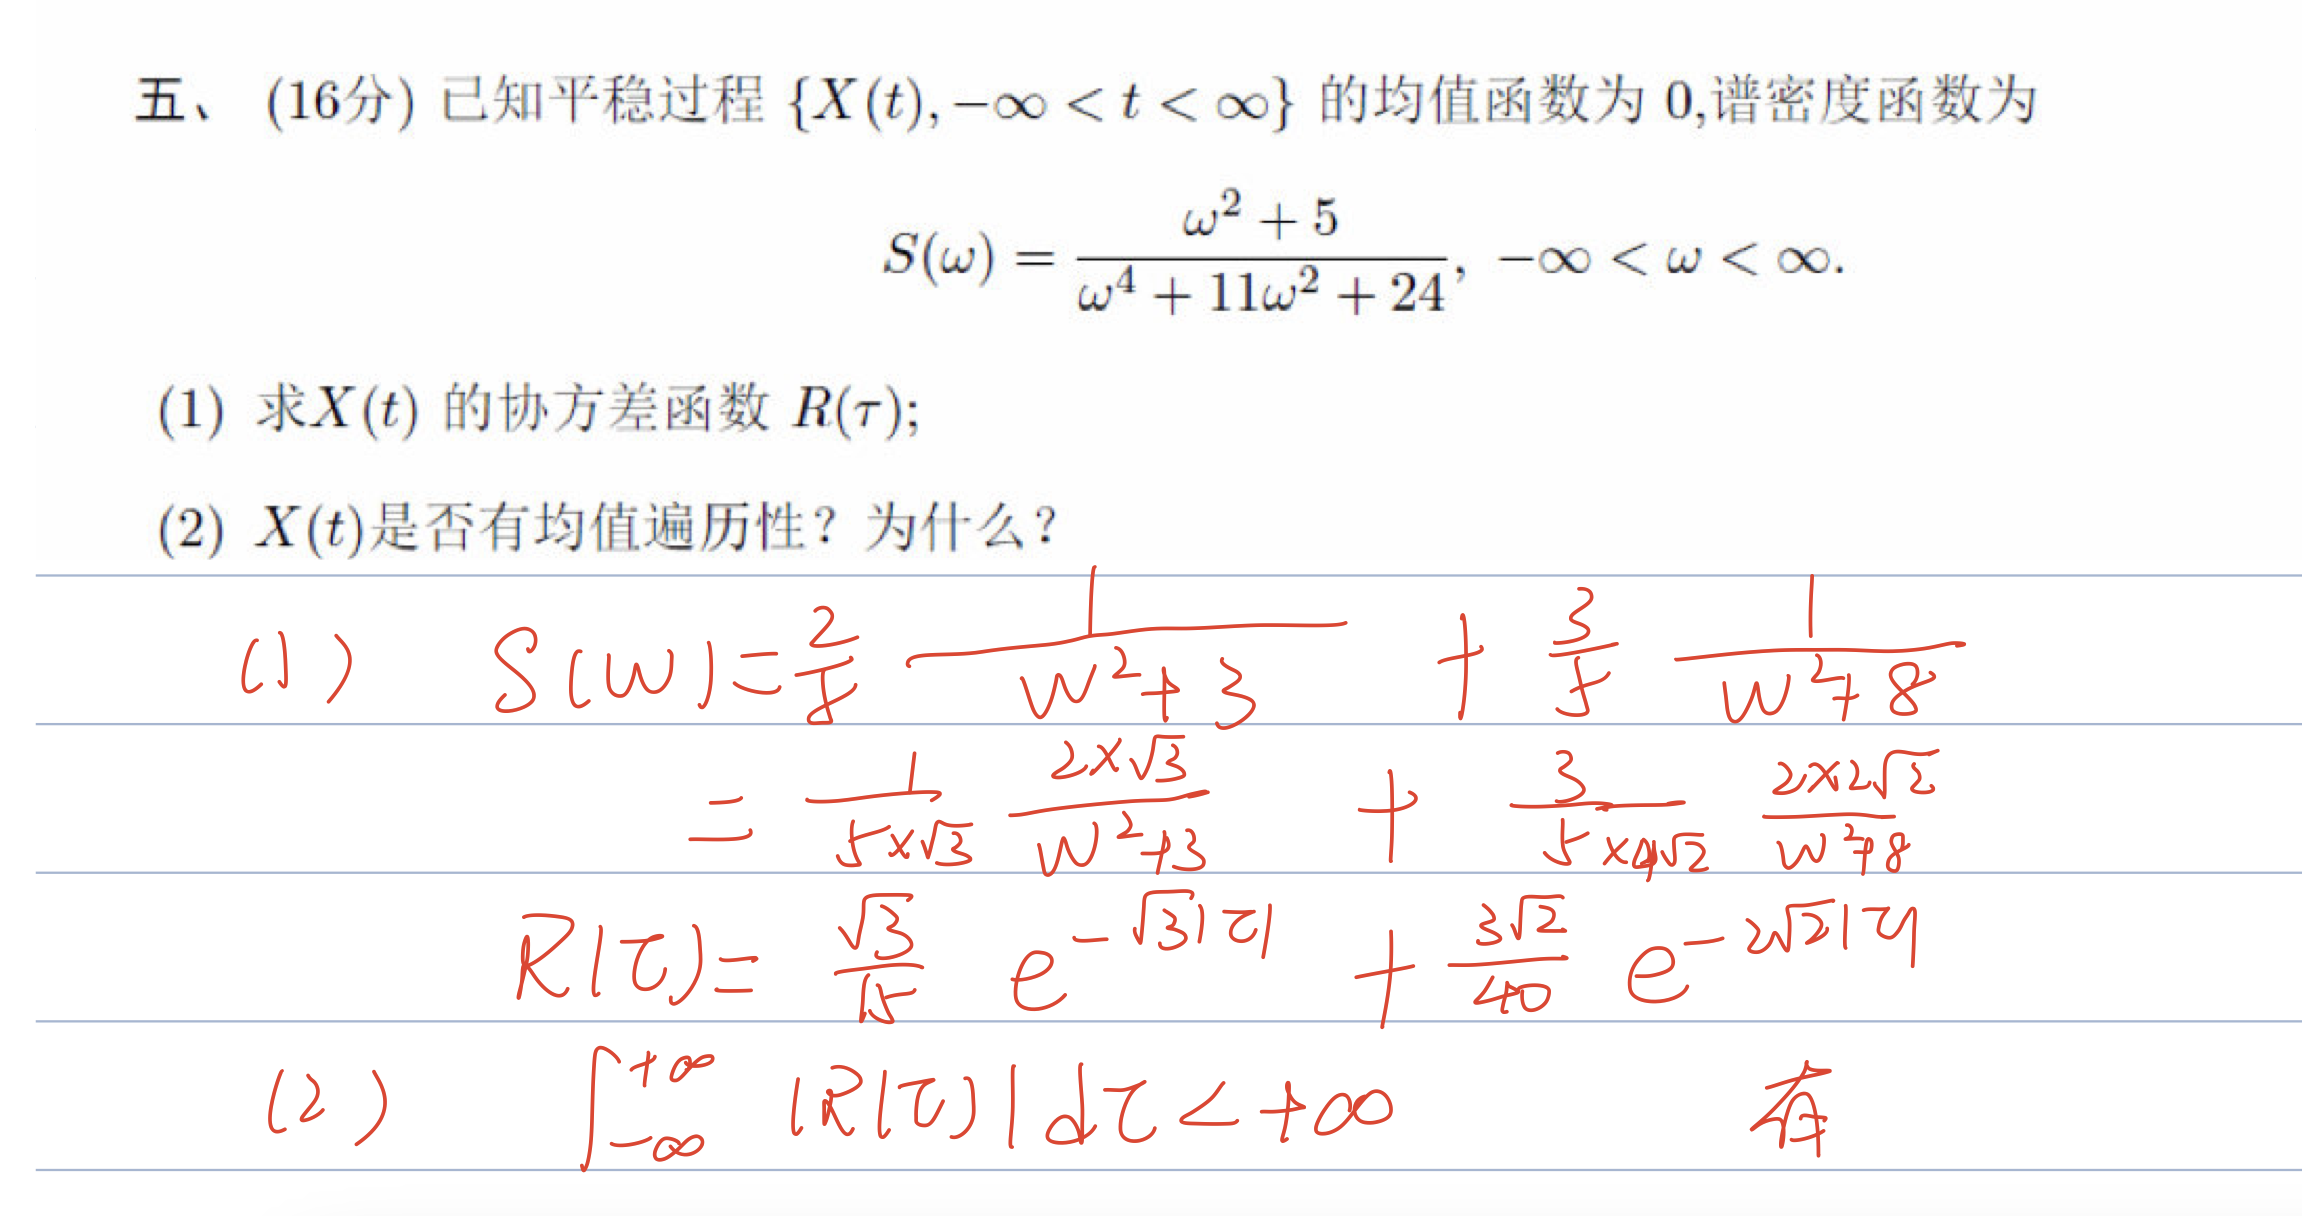 五、 (16分) 已知平稳过程 {X(t), −∞ < t < ∞} 的均值函数为 0,谱密度函数为
S(ω) = (ω² + 5)/(ω⁴ + 11ω² + 24), −∞ < ω < ∞.
(1) 求X(t) 的协方差函数 R(τ);
(2) X(t)是否有均值遍历性? 为什么?
(1) S(w) = 2/5 1/(w²+3) + 3/5 1/(w²+8)
= 1/(5×√3) (2×√3)/(w²+3) + 3/(5×4√2) (2×2√2)/(w²+8)
R(τ) = √3/15 e^(−√3|τ|) + 3√2/40 e^(−2√2|τ|)
(2) ∫_{−∞}^{+∞} |R(τ)| dτ < +∞ 有